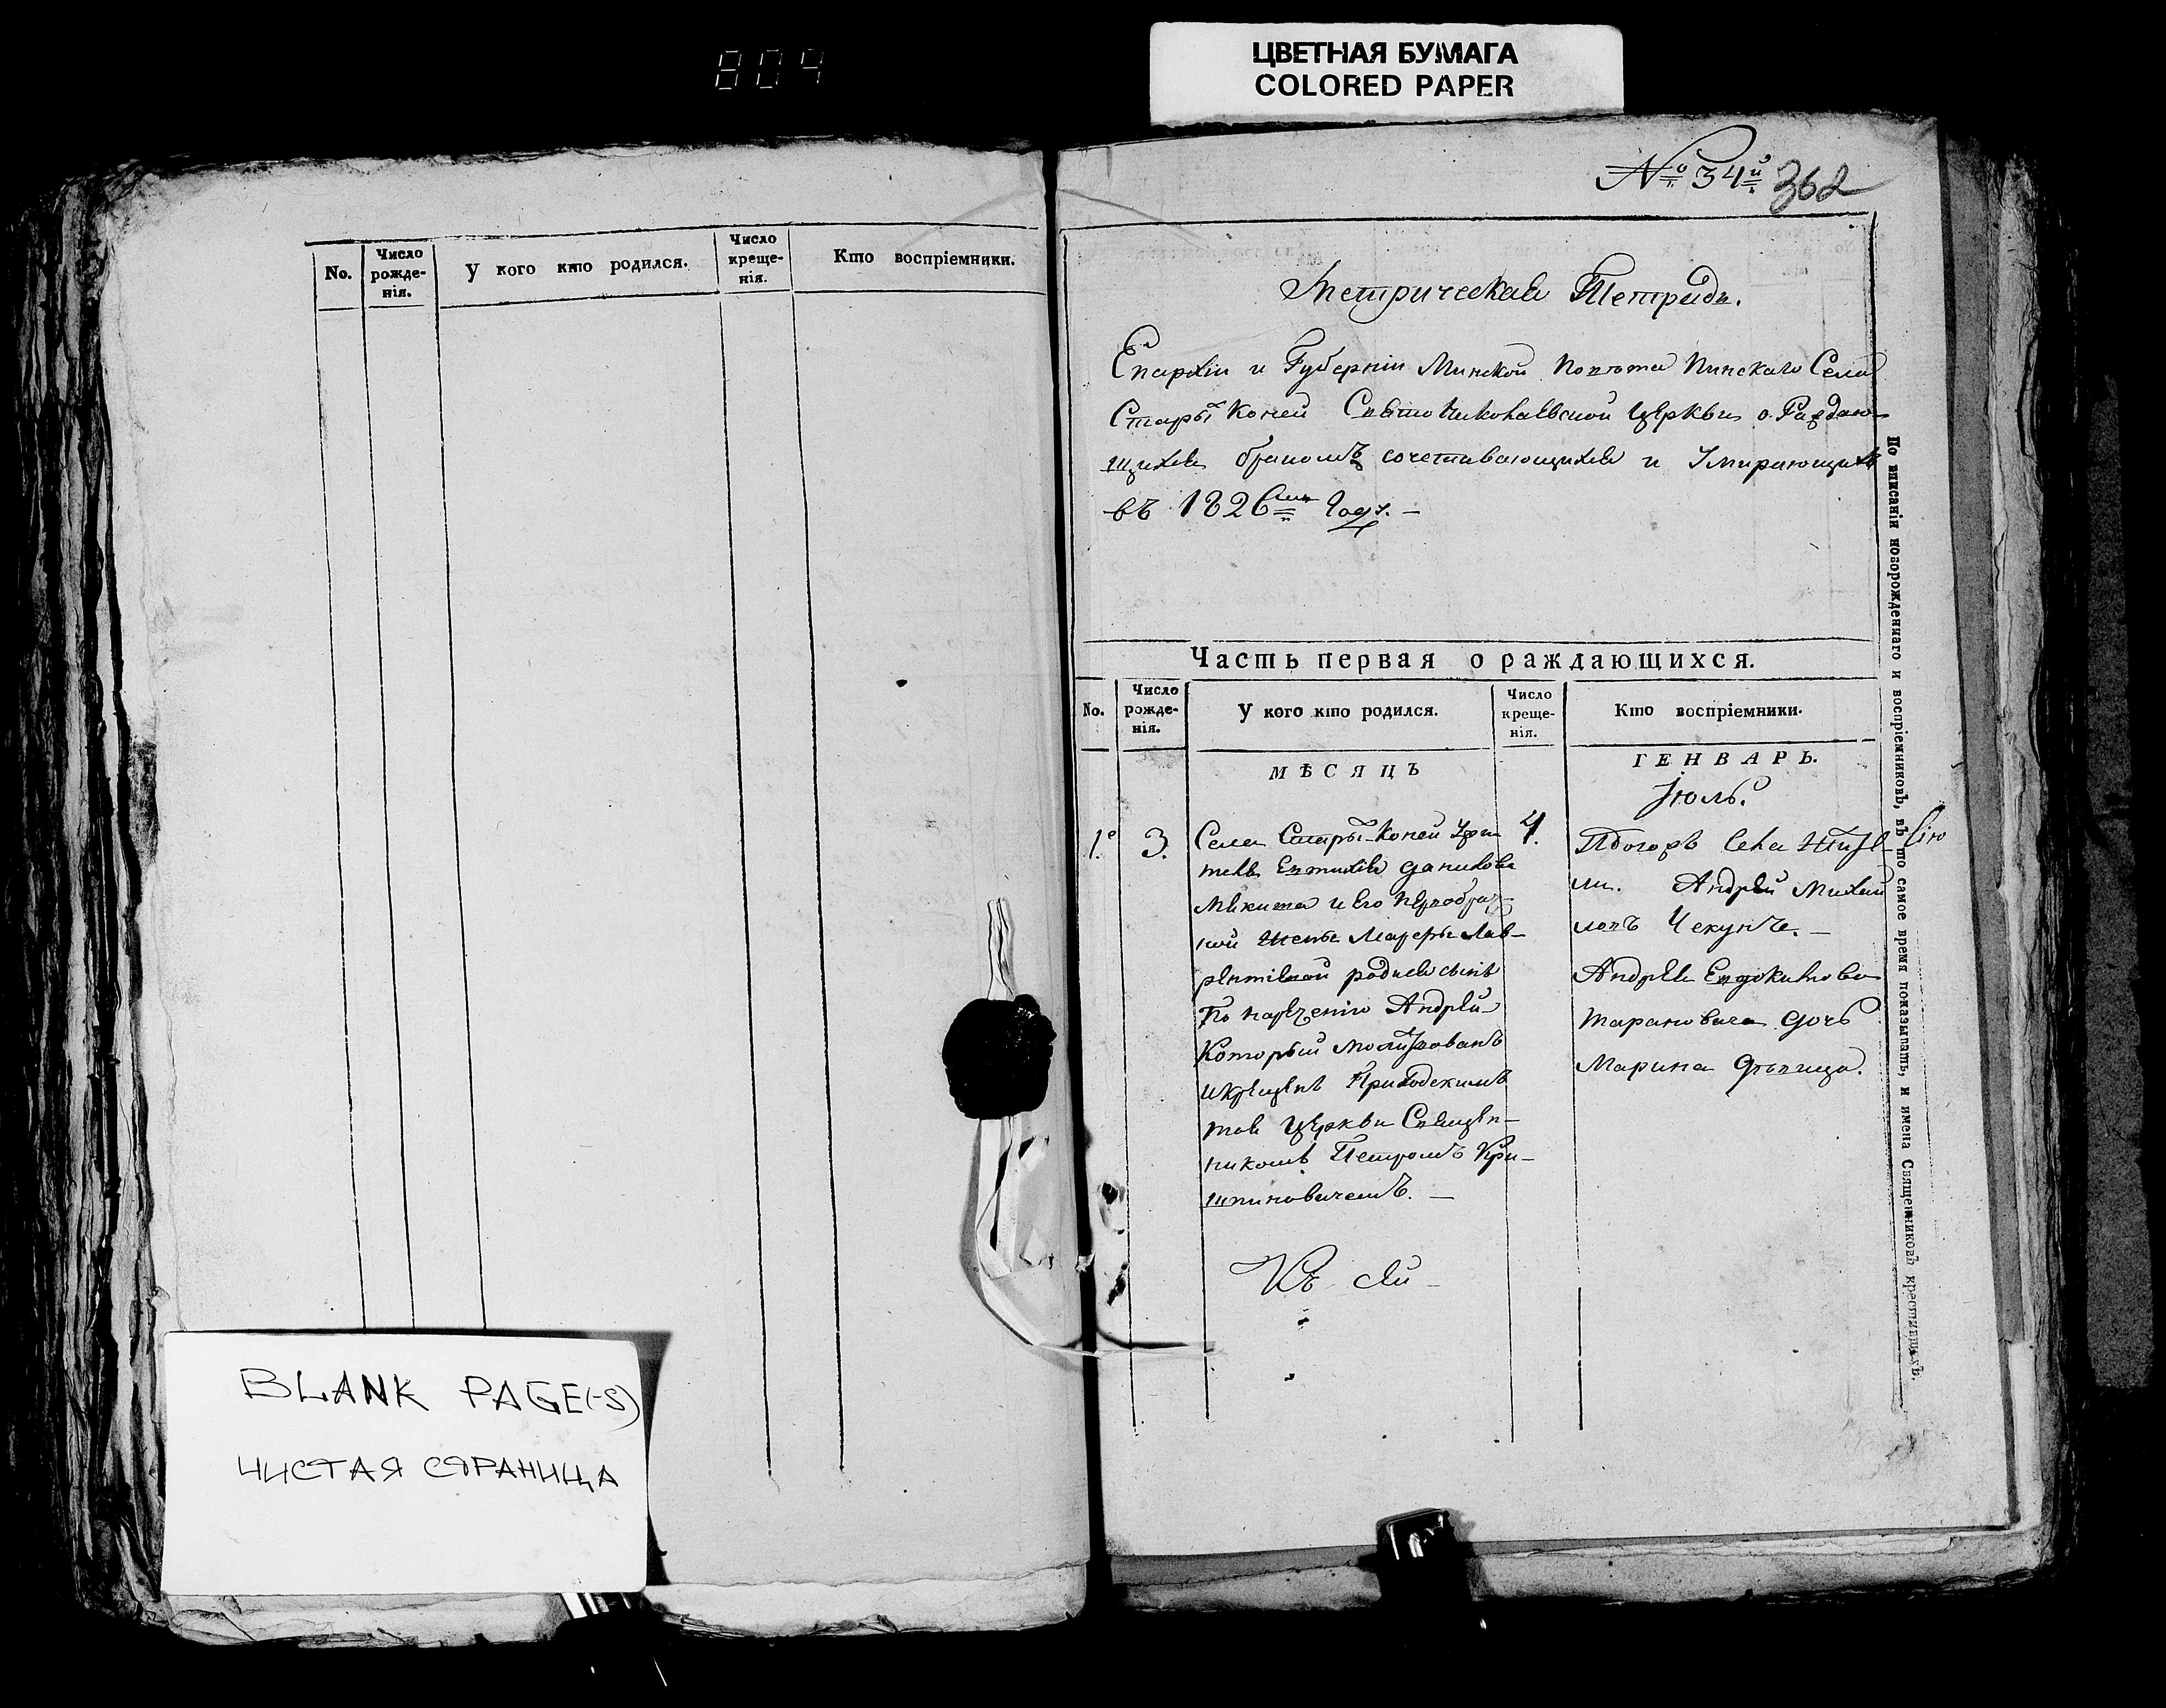 804
ЦВЕТНАЯ БУМАГА
COLORED PAPER
№ 34й 362
No.
Число рожденія.
У кого кто родился.
Число крещенія.
Кто воспріемники.
Метрическая Тетрадь.
Епархіи и Губерніи Минской Повѣта Пинскаго Села
Стары Коней Свѣто Николаевской Церкви о Раждаю-
щихся бракомъ сочетавающихся и Умирающихъ
въ 1826 году. —
Часть первая о раждающихся.
No.
Число рожде-нія.
У кого кто родился.
Число креще-нія.
Кто воспріемники.
МѢСЯЦЪ
ГЕНВАРЬ.
Іюль.
1е
3.
Села Стары-Коней
Данилова
Микита и его
ной жены Лав-
рентіевой родися сынъ
По нареченію Андрей
Который молитвованъ
и крещенъ Приходскимъ
тоя Церкви Священ-
никомъ Петромъ Кри-
штиновичемъ. —
4.
села
Андрей Михай
ловъ Чекунъ. —
Андрея Евдокимова
Тарановича дочь
Марина Дѣвица.
По вписаніи новорожденнаго и воспріемниковъ, въ то самое время показывать, и имена Священниковъ крестившихъ.
BLANK PAGE(-S)
ЧИСТАЯ СТРАНИЦА